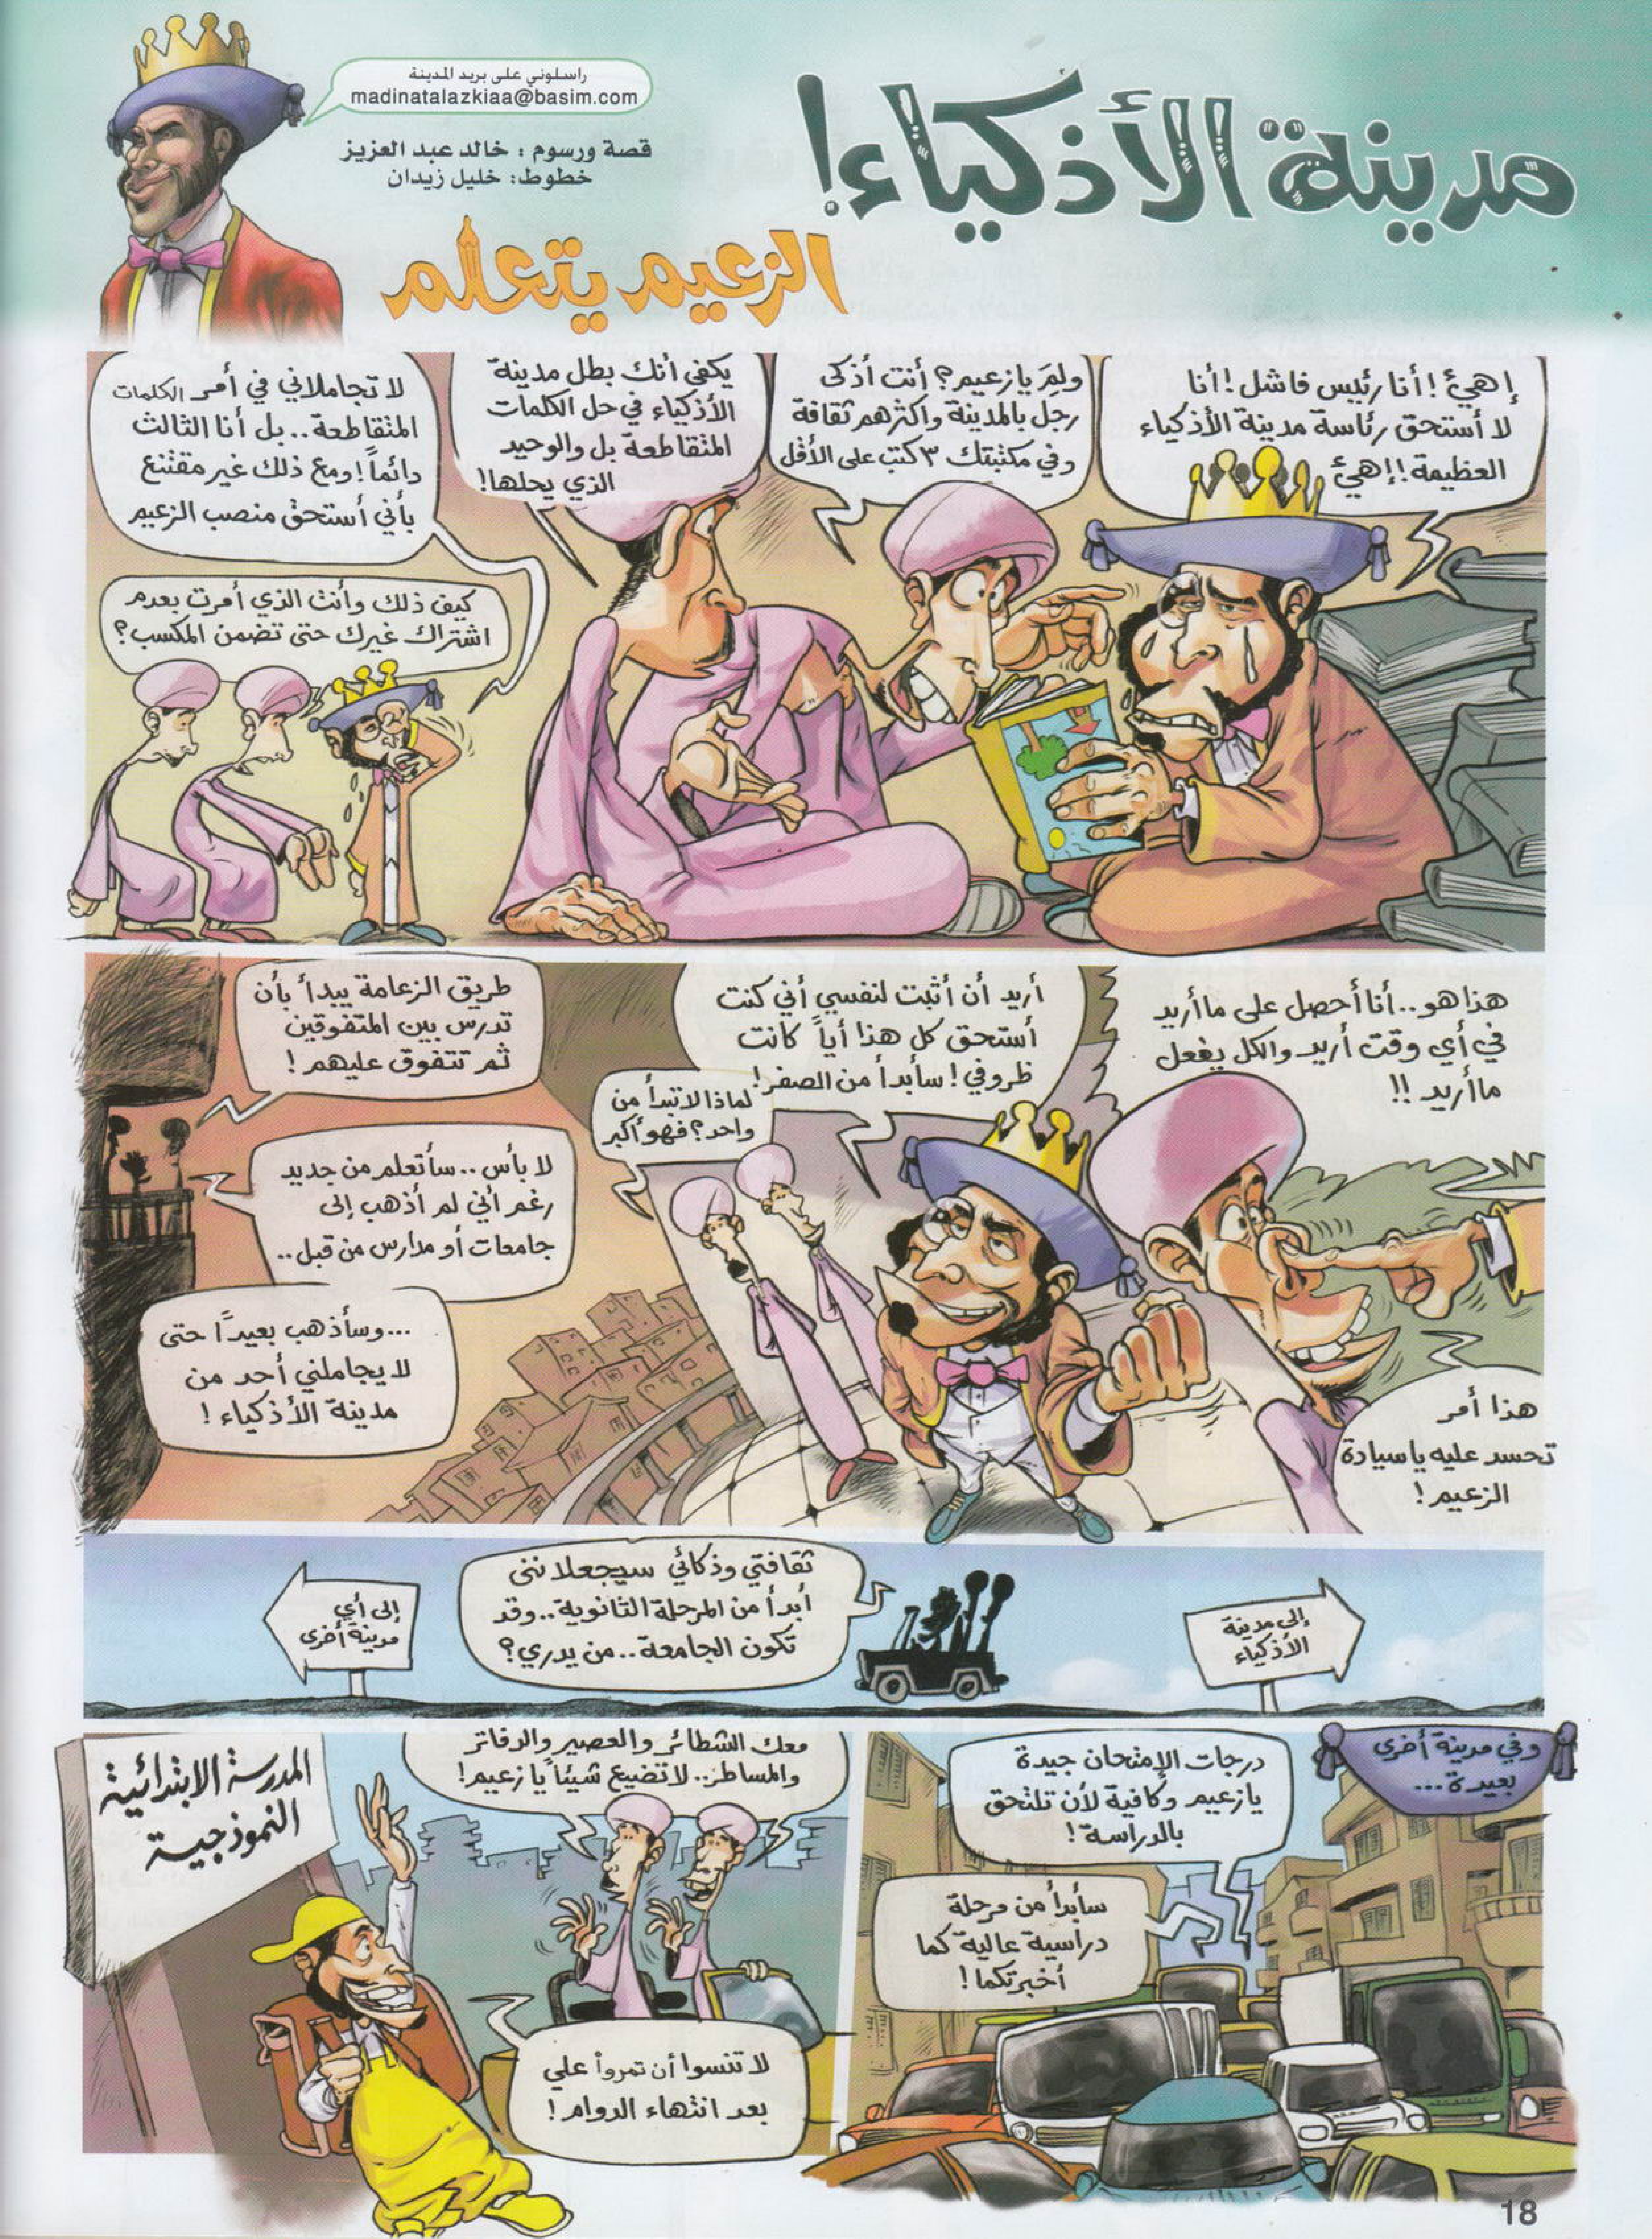 مدينة الأذكياء!
راسلوني على بريد المدينة
madinatalazkiaa@basim.com
قصة ورسوم : خالد عبد العزيز
خطوط: خليل زيدان
الزعيم يتعلم
إهئ! أنا رئيس فاشل! أنا
لا أستحق رئاسة مدينة الأذكياء
العظيمة! إهئ
ولِمَ يا زعيم؟ أنت أذكى
رجل بالمدينة واكثرهم ثقافة
وفي مكتبتك ٣ كتب على الأقل
يكفي أنك بطل مدينة
الأذكياء في حل الكلمات
المتقاطعة بل والوحيد
الذي يحلها!
لا تجاملاني في أمر الكلمات
المتقاطعة.. بل أنا الثالث
دائماً! ومع ذلك غير مقتنع
بأني أستحق منصب الزعيم
كيف ذلك وأنت الذي أمرت بعدم
اشتراك غيرك حتى تضمن المكسب؟
هذا هو.. أنا أحصل على ما أريد
في أي وقت أريد والكل يفعل
ما أريد !!
هذا أمر
تحسد عليه يا سيادة
الزعيم!
أريد أن أثبت لنفسي أني كنت
أستحق كل هذا أياً كانت
ظروفي! سأبدأ من الصفر!
لماذا لا تبدأ من
واحد؟ فهو أكبر
طريق الزعامة يبدأ بأن
تدرس بين المتفوقين
ثم تتفوق عليهم!
لا بأس.. سأتعلم من جديد
رغم أني لم أذهب إلى
جامعات أو مدارس من قبل..
...وسأذهب بعيداً حتى
لا يجاملني أحد من
مدينة الأذكياء!
إلى مدينة
الأذكياء
ثقافتي وذكائي سيجعلانني
أبدأ من المرحلة الثانوية.. وقد
تكون الجامعة.. من يدري؟
إلى أي
مدينة أخرى
وفي مدينة أخرى
بعيدة...
درجات الإمتحان جيدة
يا زعيم وكافية لأن تلتحق
بالدراسة!
سأبدأ من مرحلة
دراسية عالية كما
أخبرتكما!
معك الشطائر والعصير والدفاتر
والمساطر.. لا تضيع شيئاً يا زعيم!
المدرسة الابتدائية
النموذجية
لا تنسوا أن تمروا علي
بعد انتهاء الدوام!
18